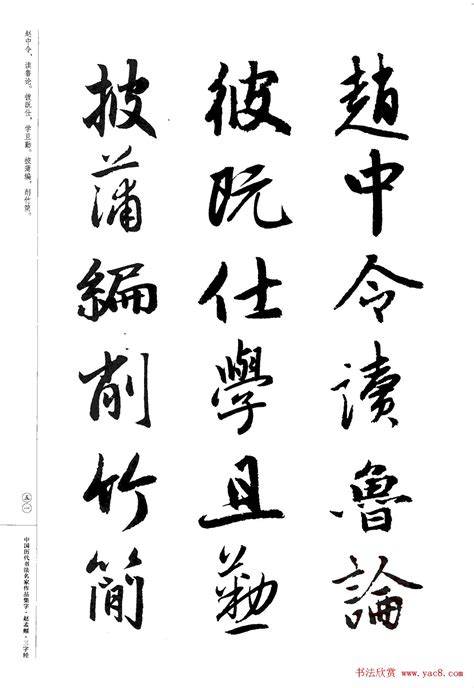 趙中令讀魯論
彼既仕學且勤
披蒲編削竹簡
赵中令，读鲁论。彼既仕，学且勤。披蒲编，削竹简。
五一
中国历代书法名家作品集字·赵孟頫·三字经
书法欣赏 www.yac8.com